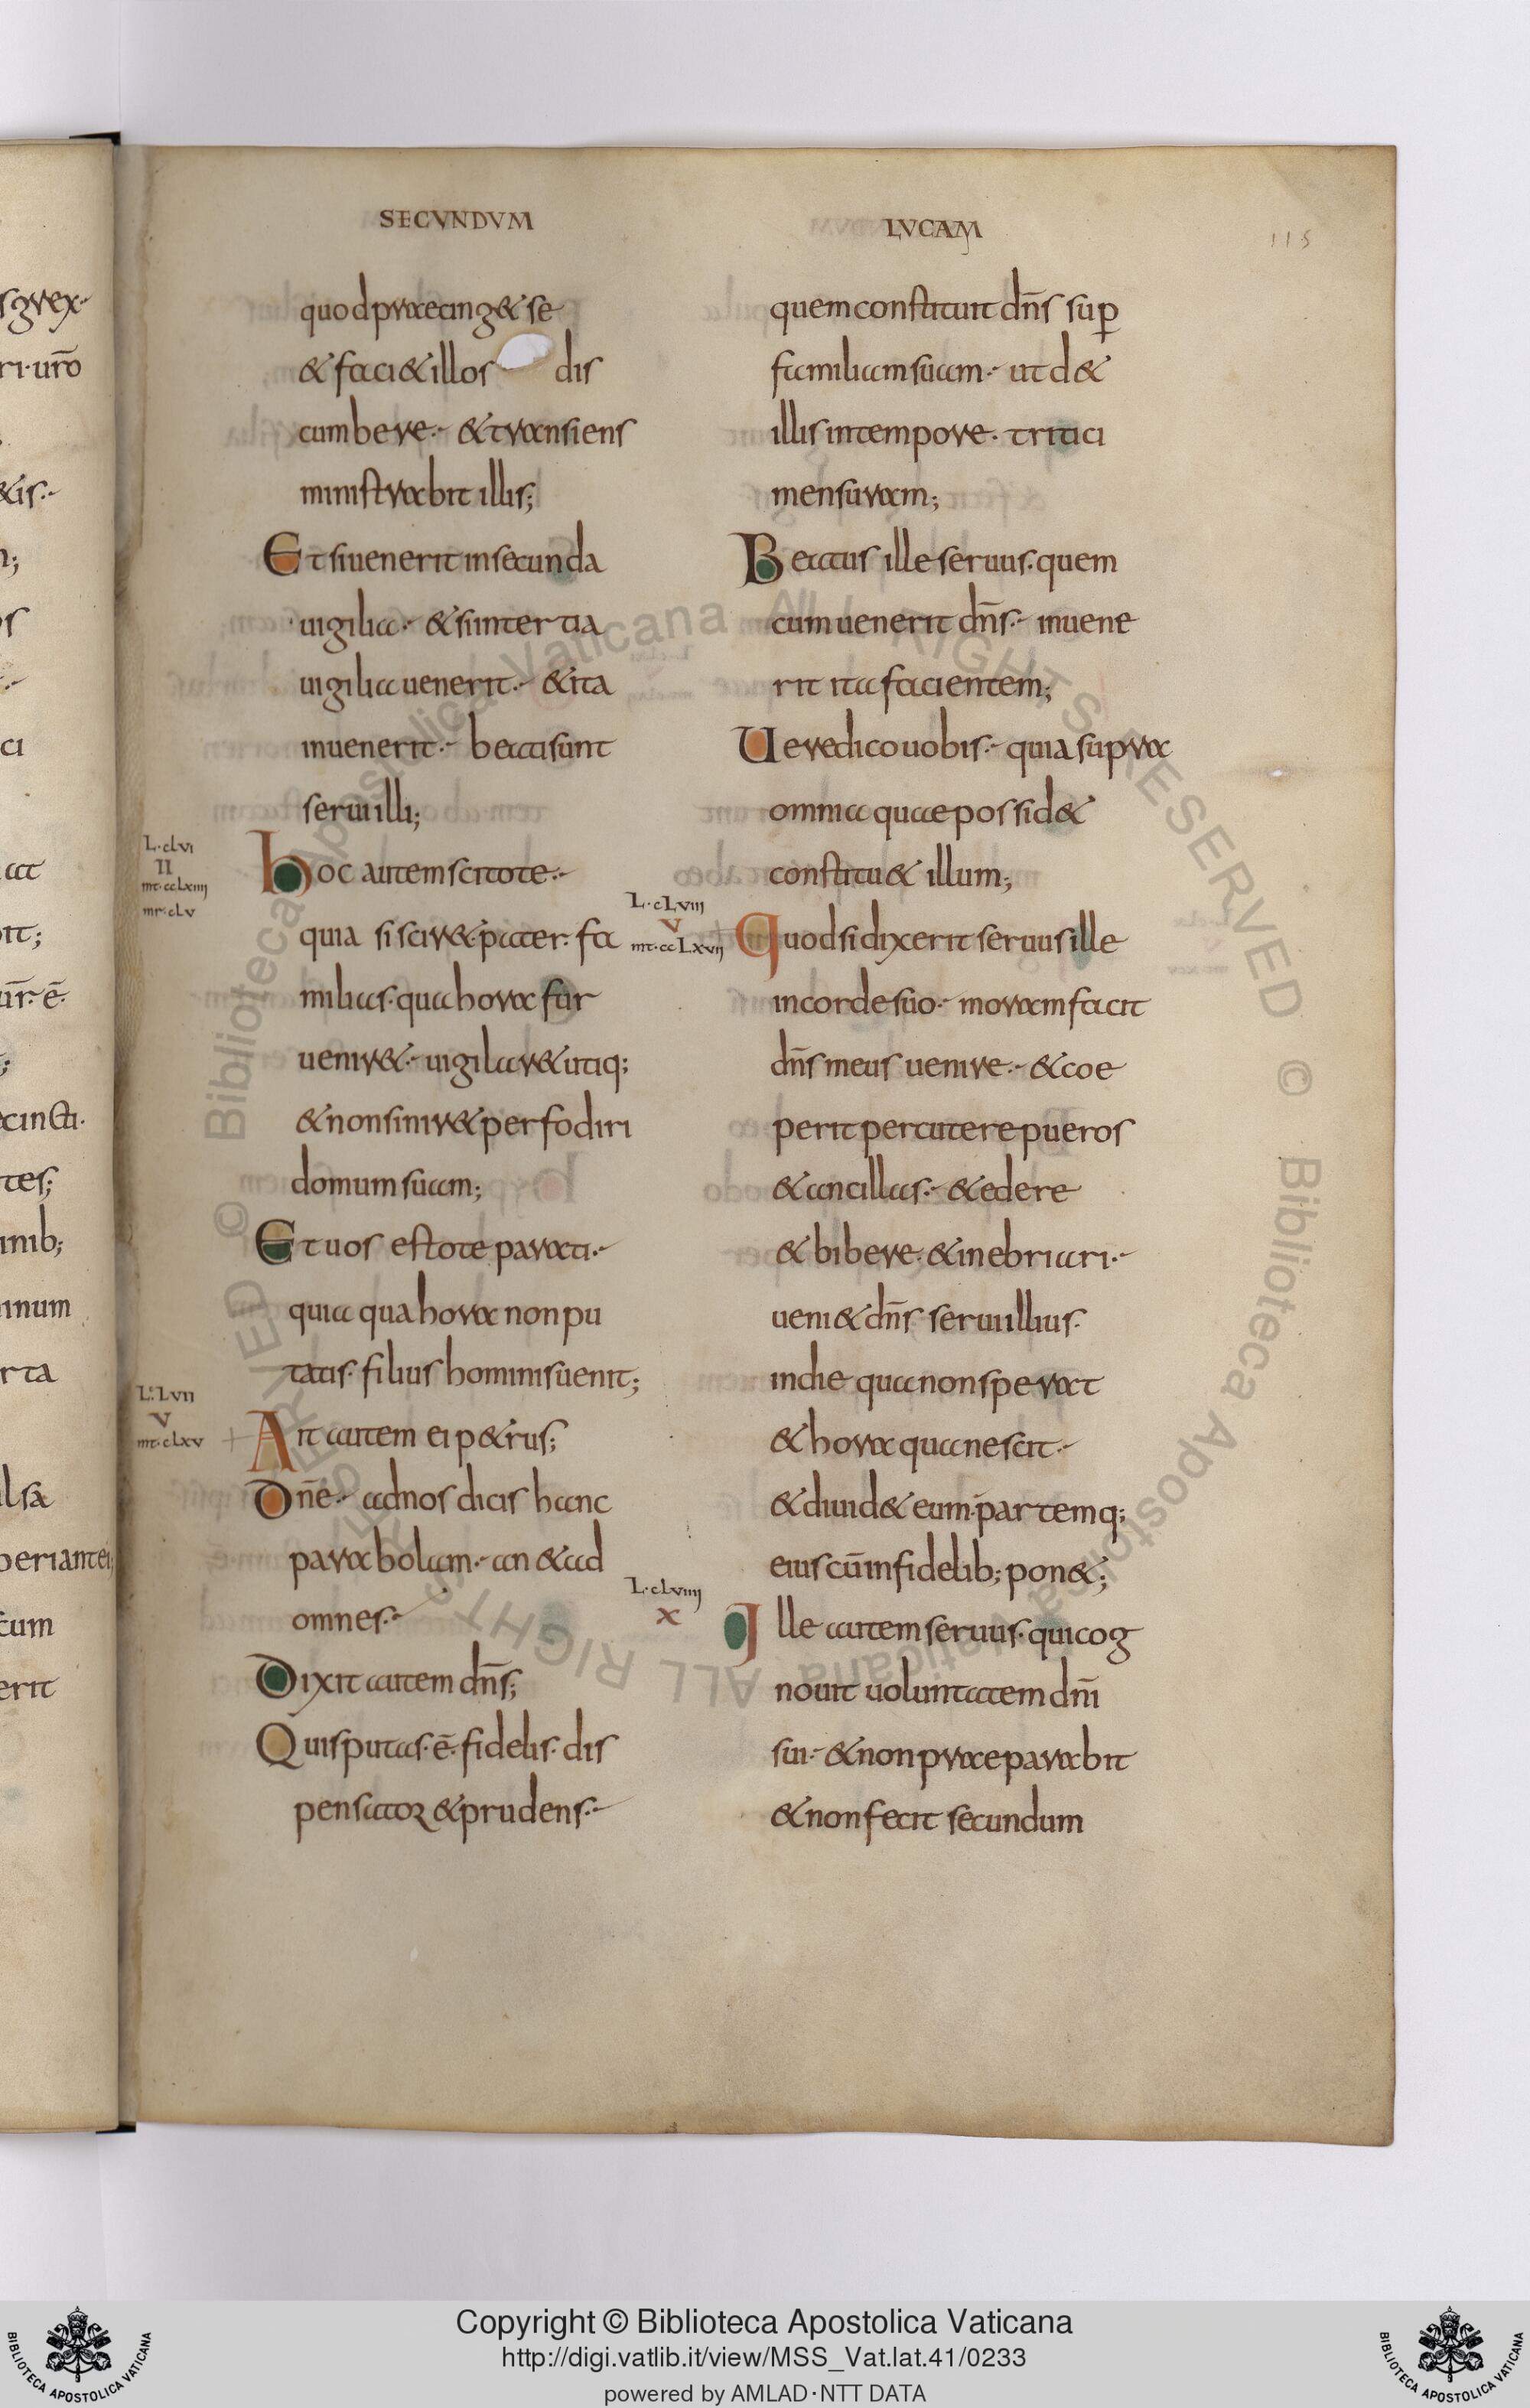 SECVNDVM
quod praecing& se
& faci& illos dis
cumbere. & transiens
ministrabit illis;
Et si uenerit in secunda
uigilia. & si in tertia
uigilia uenerit. & ita
inuenerit. beati sunt
serui illi;
L. clvi
II
mt. cclxiiii
mr. clv
hoc autem scitote.
quia si scir& pater. fa
milias. qua hora fur
uenir&. uigilar& utiq;
& non sinir& perfodiri
domum suam;
Et uos estote parati.
quia qua hora non pu
tatis. filius hominis uenit;
L. Lvii
V
mt. clxv
Ait autem ei p&rus;
Dn̄e. ad nos dicis hanc
parabolam. an & ad
omnes.
Dixit autem dn̄s;
Quis putas. ē. fidelis. dis
pensator & prudens.
LVCAM
115
quem constituit dn̄s sup̱
familiam suam. ut d&
illis in tempore. tritici
mensuram;
Beatus ille seruus. quem
cum uenerit dn̄s. inuene
rit ita facientem;
Uere dico uobis. quia supra
omnia quae possid&
constitu& illum;
L. cLviii
V
mt. ccLxvii
Quod si dixerit seruus ille
in corde suo. moram facit
dn̄s meus uenire. & coe
perit percutere pueros
& ancillas. & edere
& bibere. & inebriari.
ueni& dn̄s serui illius.
in die qua non sperat
& hora qua nescit.
& diuid& eum. partemq;
eius cū infidelib; pon&;
L. cLviiii
X
Ille autem seruus. qui cog
nouit uoluntatem dn̄i
sui. & non praeparabit
& non fecit secundum
s. grex.
ri. ur̄o
&is.
ci
at
it;
ur̄. ē.
ecincti.
tes;
inib;
inum
rta
ulsa
periant ei;
cum
erit
© Biblioteca Apostolica Vaticana ALL RIGHTS RESERVED © Biblioteca Apostolica Vaticana ALL RIGHTS RESERVED
Copyright © Biblioteca Apostolica Vaticana
http://digi.vatlib.it/view/MSS_Vat.lat.41/0233
powered by AMLAD·NTT DATA
BIBLIOTECA APOSTOLICA VATICANA
BIBLIOTECA APOSTOLICA VATICANA